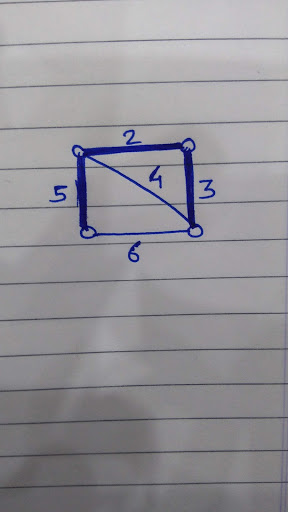 2
5 4 3
6